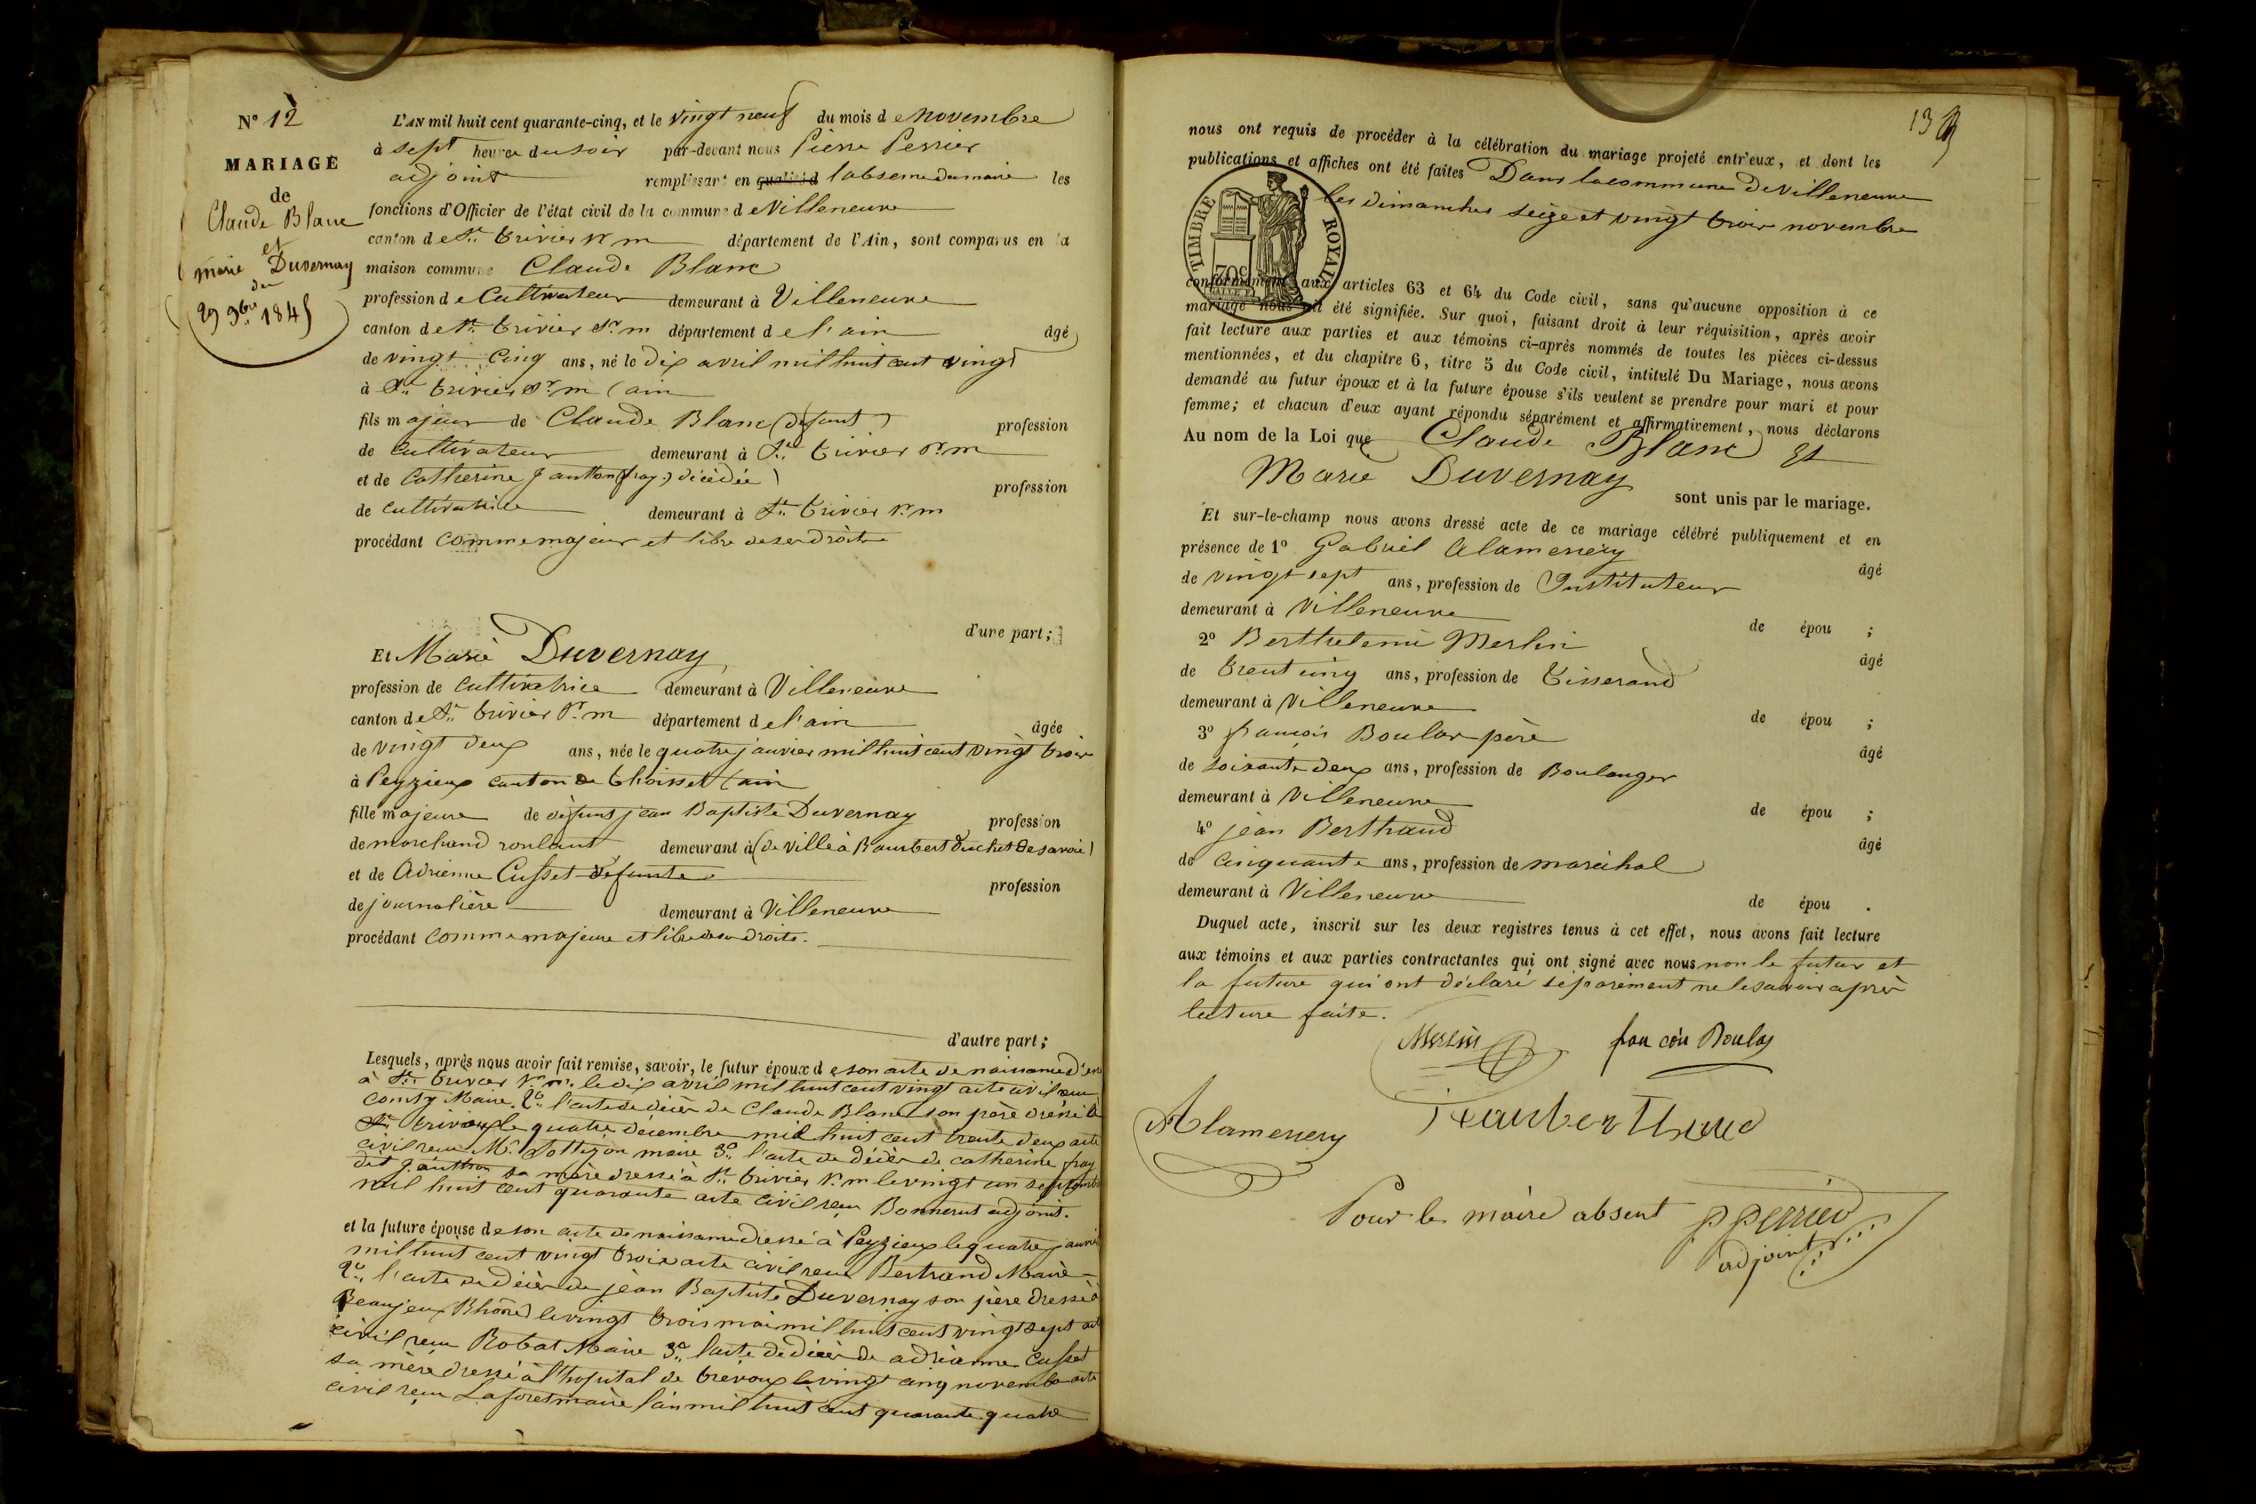 N° 12
MARIAGE
de
Claude Blanc
et
marie Duvernay
du
29 9bre 1845
L'AN mil huit cent quarante-cinq, et le vingt neuf du mois de novembre
à sept heures du soir par-devant nous Pierre Perrier
adjoint remplissant en qualité d l'absence du maire les
fonctions d'Officier de l'état civil de la commune de Villeneuve
canton de St. trivier Sr. m département de l'Ain, sont comparus en la
maison commune Claude Blanc
profession de Cultivateur demeurant à Villeneuve
canton de St. trivier Sr. m département de l'ain âgé
de vingt Cinq ans, né le dix avril mil huit cent vingt
à St. trivier Sr. m (ain
fils majeur de Claude Blanc (défunt) profession
de Cultivateur demeurant à St. trivier Sr. m
et de Catherine janthon (fray) décédée profession
de cultivatrice demeurant à St. trivier Sr. m
procédant comme majeur et libre de ses droits
d'une part;
Et Marie Duvernay
profession de cultivatrice demeurant à Villeneuve
canton de St. trivier Sr. m département de l'ain âgée
de vingt deux ans, née le quatre janvier mil huit cent vingt trois
à Peyzieux canton de thoisset (ain
fille majeure de défunt jean Baptiste Duvernay profession
de marchand roulant demeurant à (de ville à Baumbert Duchet de Savoie)
et de Adrienne Cusset défunte profession
de journalière demeurant à Villeneuve
procédant comme majeure et libre de ses droits.
d'autre part;
Lesquels, après nous avoir fait remise, savoir, le futur époux de son acte de naissance
à St. trivier Sr. m. le dix avril mil huit cent vingt acte civil reçu
Maire. 2° l'acte de décès de Claude Blanc son père dressé à
St. trivier le quatre décembre mil huit cent trente deux acte
civil reçu Mr. maire 3° l'acte de décès de catherine fray
dit janthon sa mère dressé à St. trivier Sr. m le vingt un septembre
mil huit cent quarante acte civil reçu Bonnerut adjoint.
et la future épouse de son acte de naissance dressé à Peyzieux le quatre janvier
mil huit cent vingt trois acte civil reçu Bertrand Maire
2° l'acte de décès de jean Baptiste Duvernay son père dressé à
Beaujeux Rhône) le vingt trois mai mil huit cent vingt sept acte
civil reçu Robat Maire 3° l'acte de décès de adrianne Cusset
sa mère dressé à l'hopital de trevoux le vingt cinq novembre acte
civil reçu Laforest maire l'an mil huit cent quarante quatre
13
nous ont requis de procéder à la célébration du mariage projeté entr'eux, et dont les
publications et affiches ont été faites Dans la commune de Villeneuve
les dimanches seize et vingt trois novembre
TIMBRE ROYAL
70c
conformément aux articles 63 et 64 du Code civil, sans qu'aucune opposition à ce
mariage nous ait été signifiée. Sur quoi, faisant droit à leur réquisition, après avoir
fait lecture aux parties et aux témoins ci-après nommés de toutes les pièces ci-dessus
mentionnées, et du chapitre 6, titre 5 du Code civil, intitulé Du Mariage, nous avons
demandé au futur époux et à la future épouse s'ils veulent se prendre pour mari et pour
femme; et chacun d'eux ayant répondu séparément et affirmativement, nous déclarons
Au nom de la Loi que Claude Blanc et
Marie Duvernay sont unis par le mariage.
Et sur-le-champ nous avons dressé acte de ce mariage célébré publiquement et en
présence de 1° Gabriel Alamercery âgé
de vingt sept ans, profession de Instituteur
demeurant à Villeneuve de épou ;
2° Berthelemi Merlin âgé
de trent cinq ans, profession de tisserand
demeurant à Villeneuve de épou ;
3° francois Boulas père âgé
de soixante deux ans, profession de Boulanger
demeurant à Villeneuve de épou ;
4° jean Berthaud âgé
de cinquante ans, profession de maréchal
demeurant à Villeneuve de épou .
Duquel acte, inscrit sur les deux registres tenus à cet effet, nous avons fait lecture
aux témoins et aux parties contractantes qui ont signé avec nous non le futur et
la future qui ont déclaré séparément ne le savoir après
lecture faite.
Merlin francois Boulas
Alamercery
Pour le maire absent p perrier
adjoint